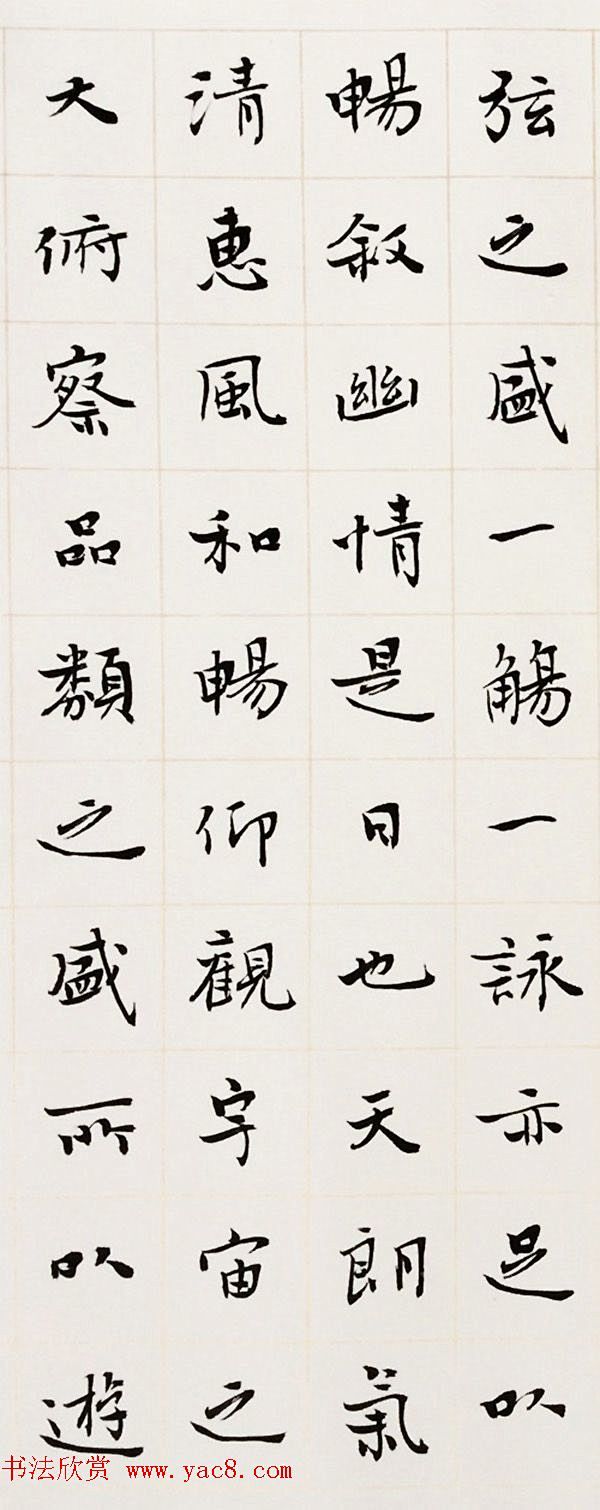 弦之盛一觴一詠亦足以
暢敘幽情是日也天朗氣
清惠風和暢仰觀宇宙之
大俯察品類之盛所以遊
书法欣赏 www.yac8.com